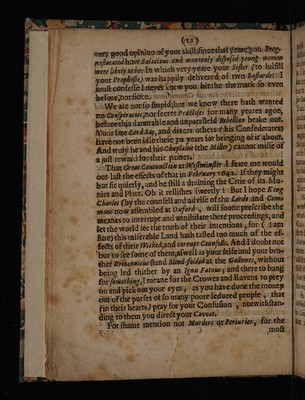 (12)
very good opinion of your skill, since that yeare you Prognosticated how Salacious and wantonly disposed young women
were likely to be: In which very yeere your Sister (to fulfill
your Prophesie) was happily delivered of two Bastards: I
must confesse I never knew you hit the mark so even
before, nor since.
We are not so stupid, but we know there hath wanted
no Conspiracies, nor secret Practises for many yeares agoe,
before this damnable and unparalleld Rebellion brake out.
Your late Lord Say, and divers others (his Confederates)
have not been idle these years for bringing of it about.
And truly he and his Chaplaine (the Miller) cannot misse of
a just reward for their paines.
That Great Conjunction at Westminster I feare me would
out-last the effects of that in February 1642. If they might
but sit quietly, and be still a drilling the Citie of its Monies and Plate. Oh it rellishes sweetly! But I hope King
Charles (by the counsell and advise of the Lords and Commons now assembled at Oxford, will soone prescribe the
meanes to interrupt and annihilate these proceedings, and
let the world see the truth of their intentions, for (I am
sure) this miserable Land hath tasted too much of the effects of their Wicked, and corrupt Counsells. And I doubt not
but to see some of them, as well as your selfe and your brother Britannicus stand Blind-folded at the Gallows, without
being led thither by an Ignis Fatuus; and there to hang
for something, I meane for the Crowes and Ravens to prey
on and pick out your eyes, as you have done the money
out of the purses of so many poore seduced people, that
(in their hearts) pray for your Confusion, notwithstanding to them you direct your Caveat.
For shame mention not Murders or Perjuries, for the
most